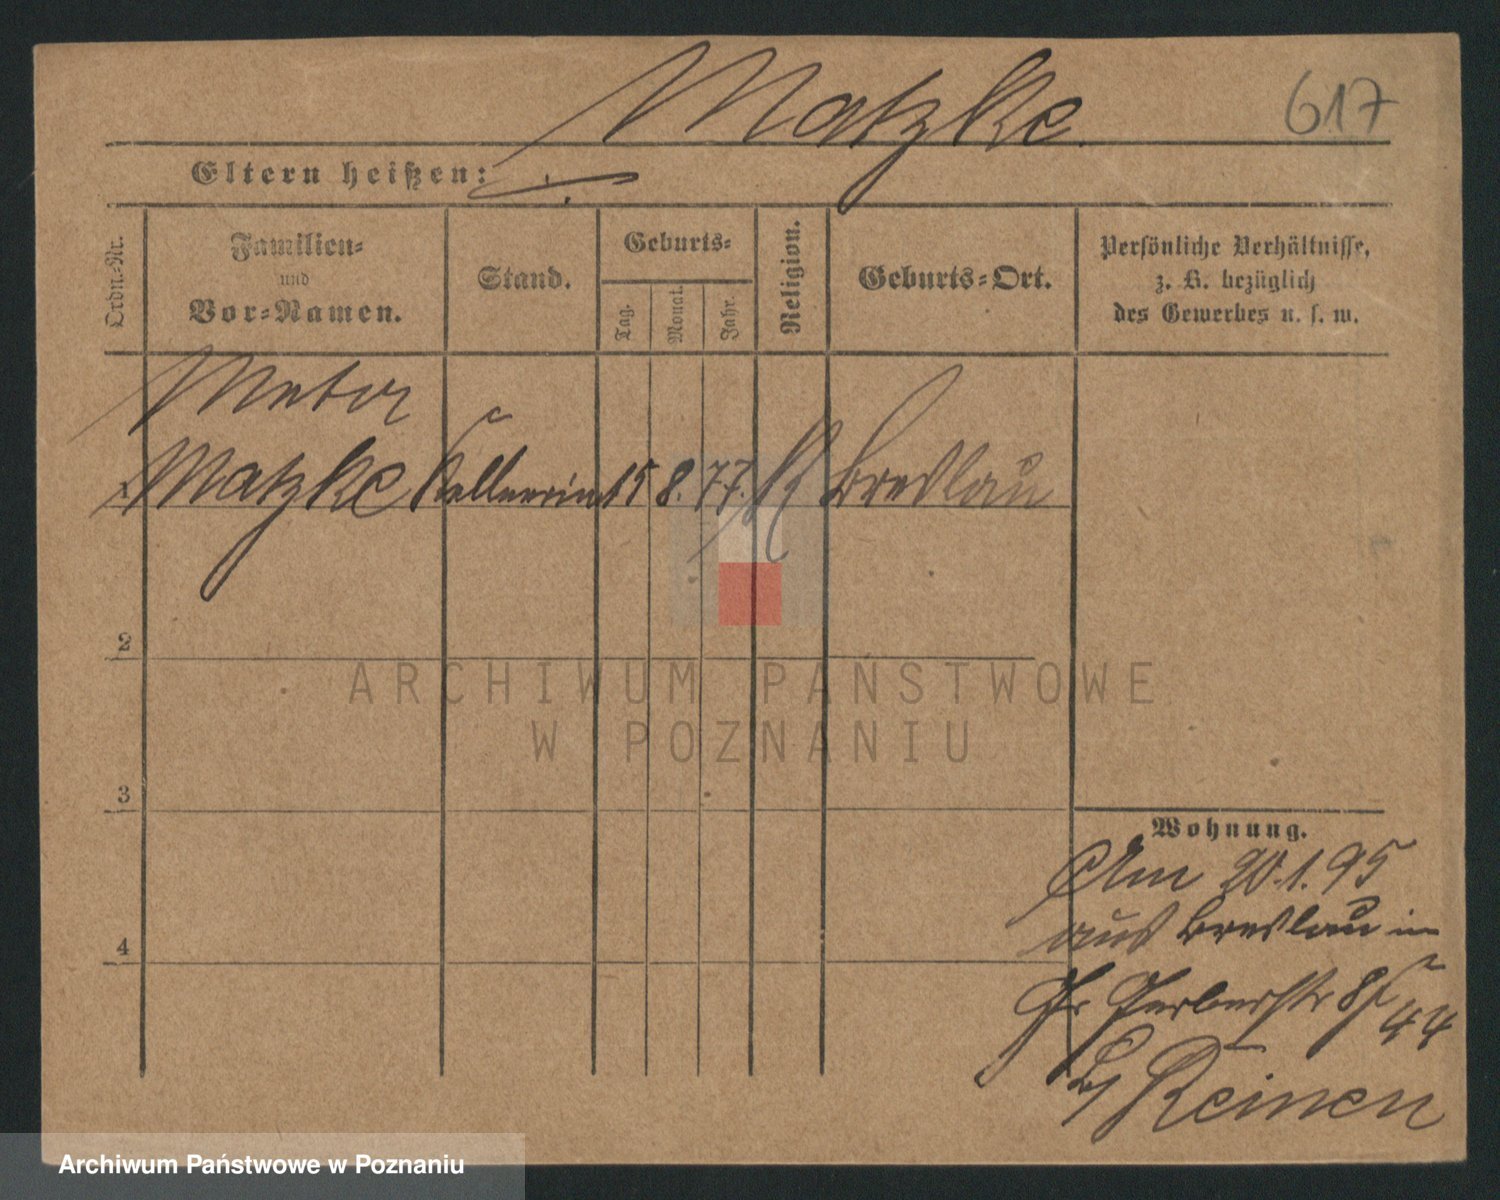 Matzke
617
Eltern heißen:
Ordn.-Nr.
Familien-
und
Vor-Namen.
Stand.
Geburts-
Tag.
Monat.
Jahr.
Religion.
Geburts-Ort.
Persönliche Verhältnisse,
z. B. bezüglich
des Gewerbes u. s. w.
1 Matzke Kellnerin 15 8. 77. Breslau
2
ARCHIWUM PAŃSTWOWE
W POZNANIU
3
Wohnung.
Am 20.1.95
aus Breslau in
4
Gr Gerberstr
44
Reimen
Archiwum Państwowe w Poznaniu